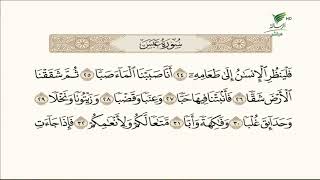 الرسالة HD
سُورَةُ عَبَسَ
فَلْيَنظُرِ ٱلْإِنسَٰنُ إِلَىٰ طَعَامِهِۦٓ ٢٤ أَنَّا صَبَبْنَا ٱلْمَآءَ صَبًّا ٢٥ ثُمَّ شَقَقْنَا
ٱلْأَرْضَ شَقًّا ٢٦ فَأَنۢبَتْنَا فِيهَا حَبًّا ٢٧ وَعِنَبًا وَقَضْبًا ٢٨ وَزَيْتُونًا وَنَخْلًا ٢٩
وَحَدَآئِقَ غُلْبًا ٣٠ وَفَٰكِهَةً وَأَبًّا ٣١ مَّتَٰعًا لَّكُمْ وَلِأَنْعَٰمِكُمْ ٣٢ فَإِذَا جَآءَتِ